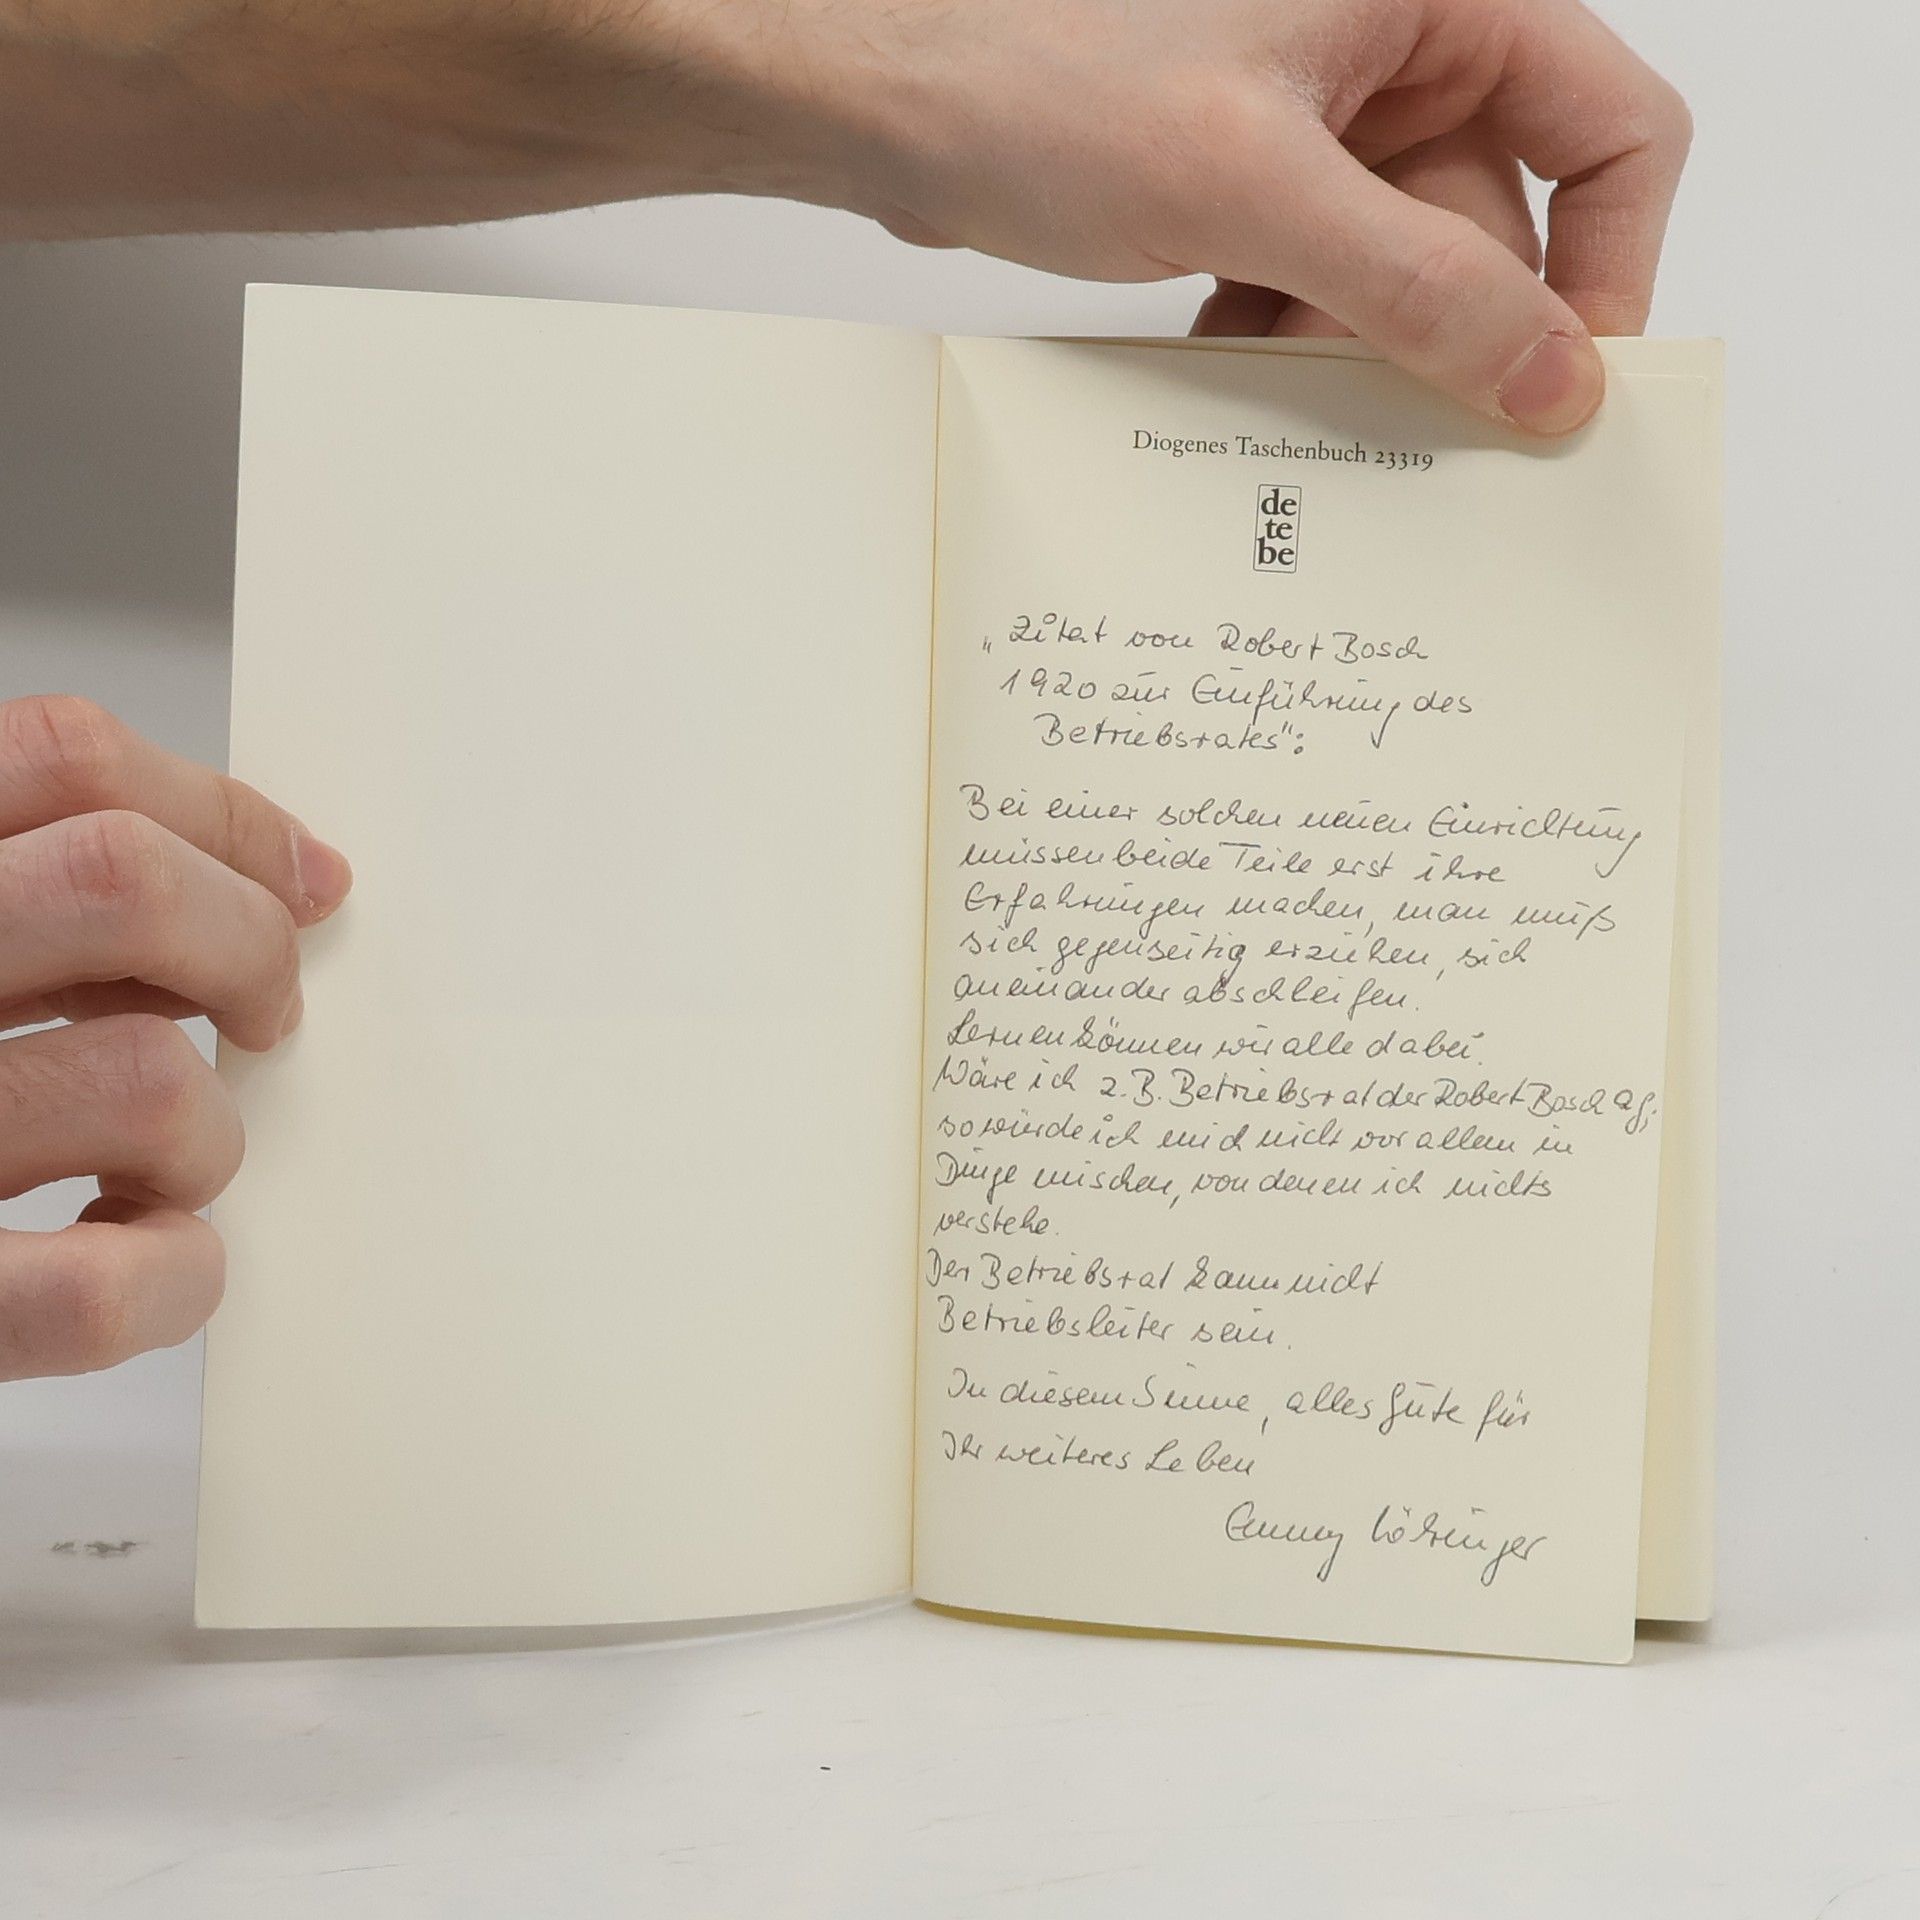 Diogenes Taschenbuch 23319
de
te
be
„Zitat von Robert Bosch
1920 zur Einführung des
Betriebsrates":
Bei einer solchen neuen Einrichtung
müssen beide Teile erst ihre
Erfahrungen machen, man muß
sich gegenseitig erziehen, sich
aneinander abschleifen.
Lernen können wir alle dabei.
Wäre ich z.B. Betriebsrat der Robert Bosch AG,
so würde ich mich nicht vor allem in
Dinge mischen, von denen ich nichts
verstehe.
Der Betriebsrat kann nicht
Betriebsleiter sein.
In diesem Sinne, alles Gute für
Ihr weiteres Leben
Emmy